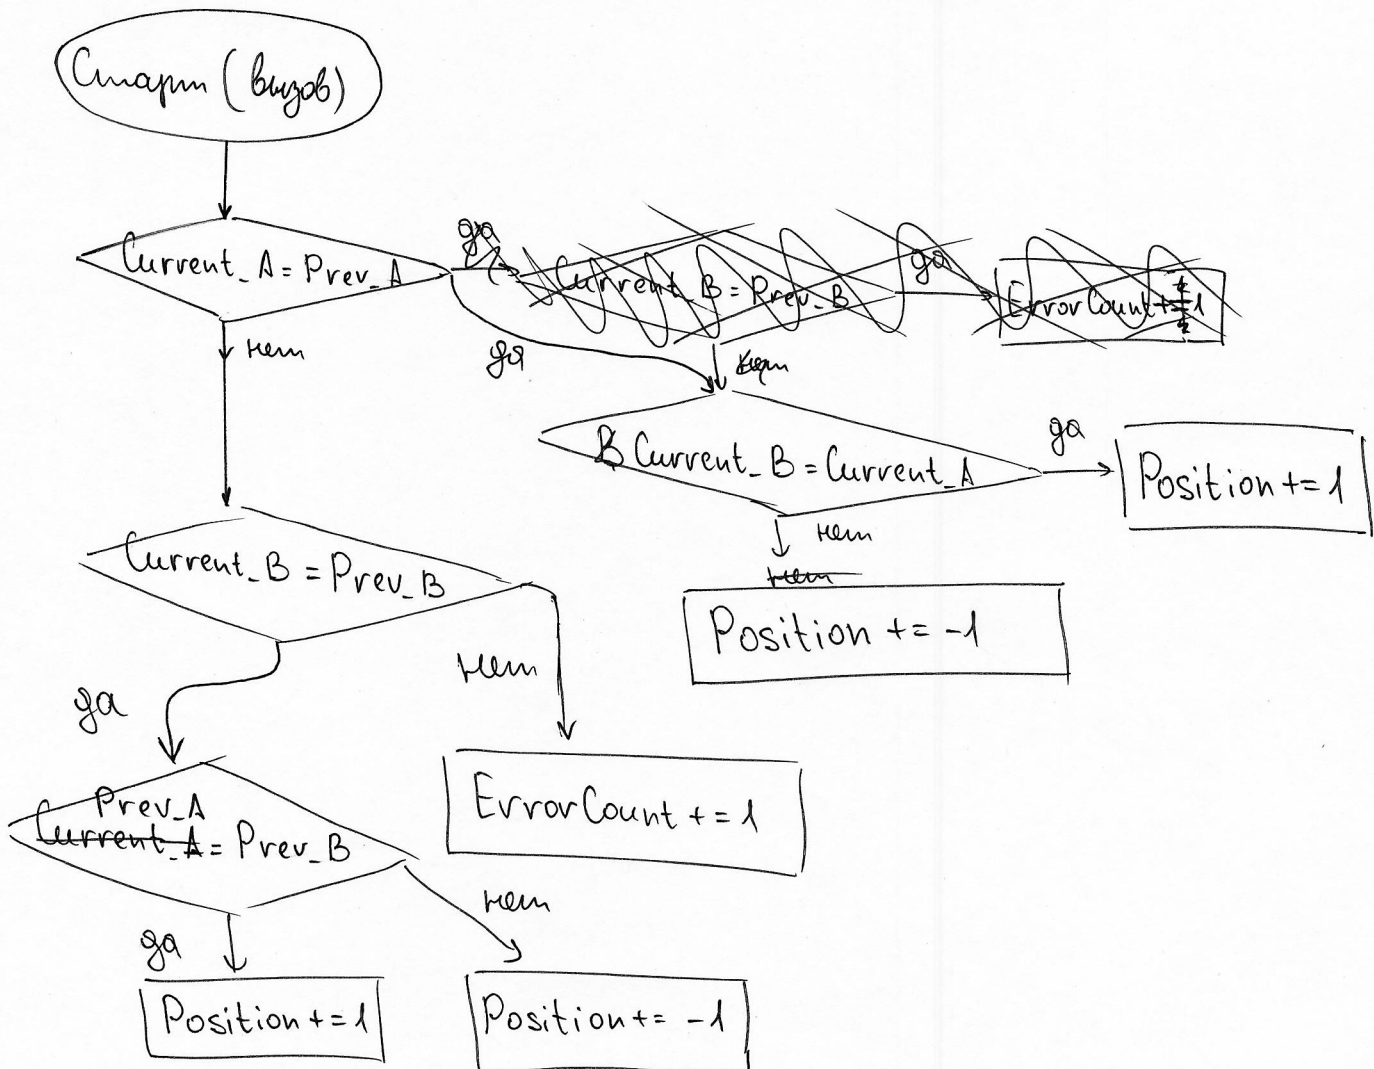 Старт (вызов)
Current_A = Prev_A
да
Current_B = Prev_B
да
ErrorCount += 1
нет
да
нет
Current_B = Current_A
да
Position += 1
нет
нет
Position += -1
Current_B = Prev_B
да
нет
Prev_A
Current_A = Prev_B
ErrorCount += 1
да
нет
Position += 1
Position += -1